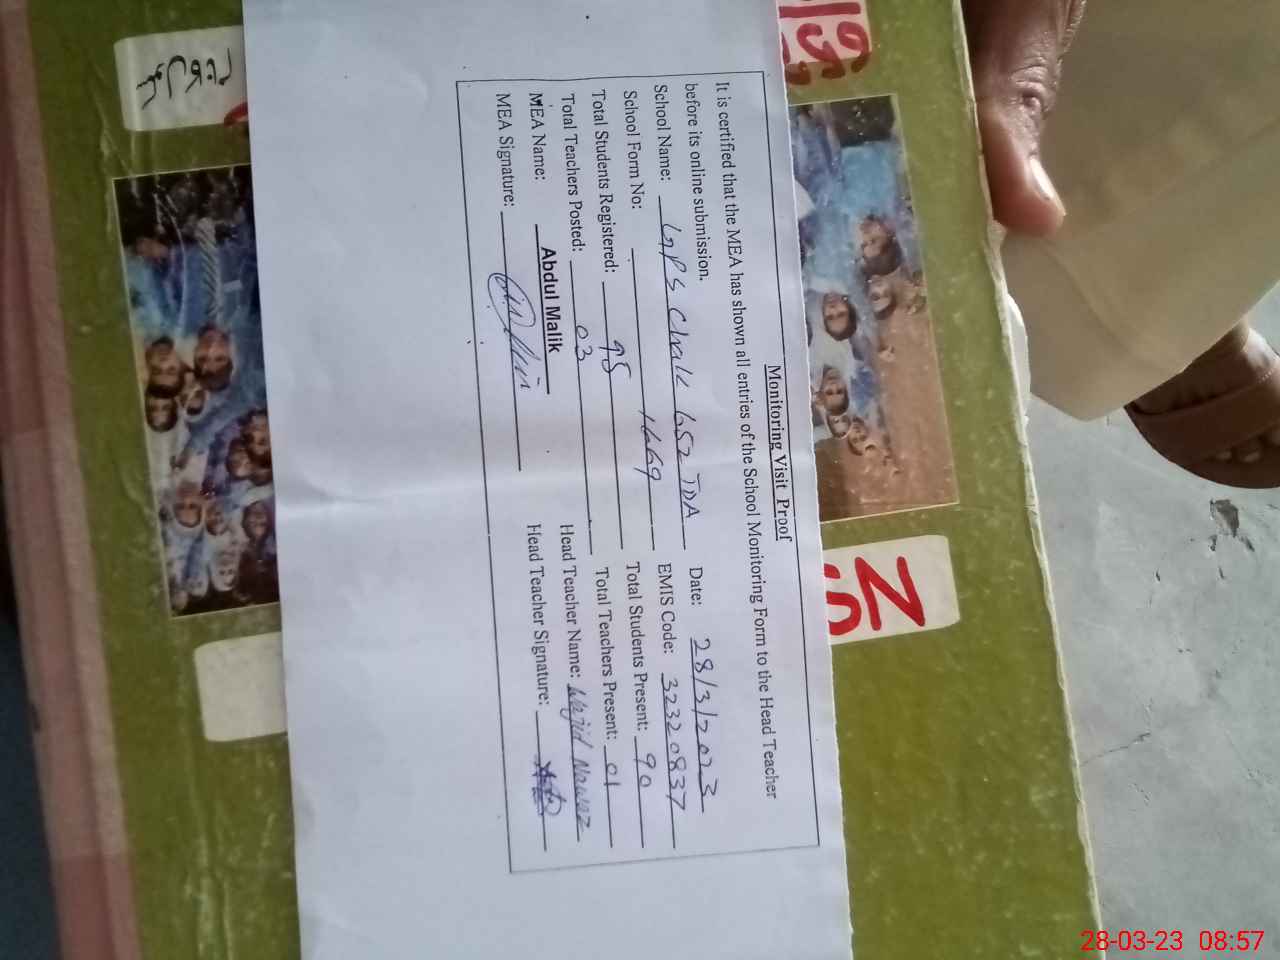 Monitoring Visit Proof
It is certified that the MEA has shown all entries of the School Monitoring Form to the Head Teacher
before its online submission.
School Name: GPS Chak 652 TDA Date: 28/3/2023
School Form No: 1669 EMIS Code: 32320837
Total Students Registered: 98 Total Students Present: 90
Total Teachers Posted: 03 Total Teachers Present: 01
MEA Name: Abdul Malik Head Teacher Name: Wajid Nawaz
MEA Signature: Head Teacher Signature:
28-03-23 08:57